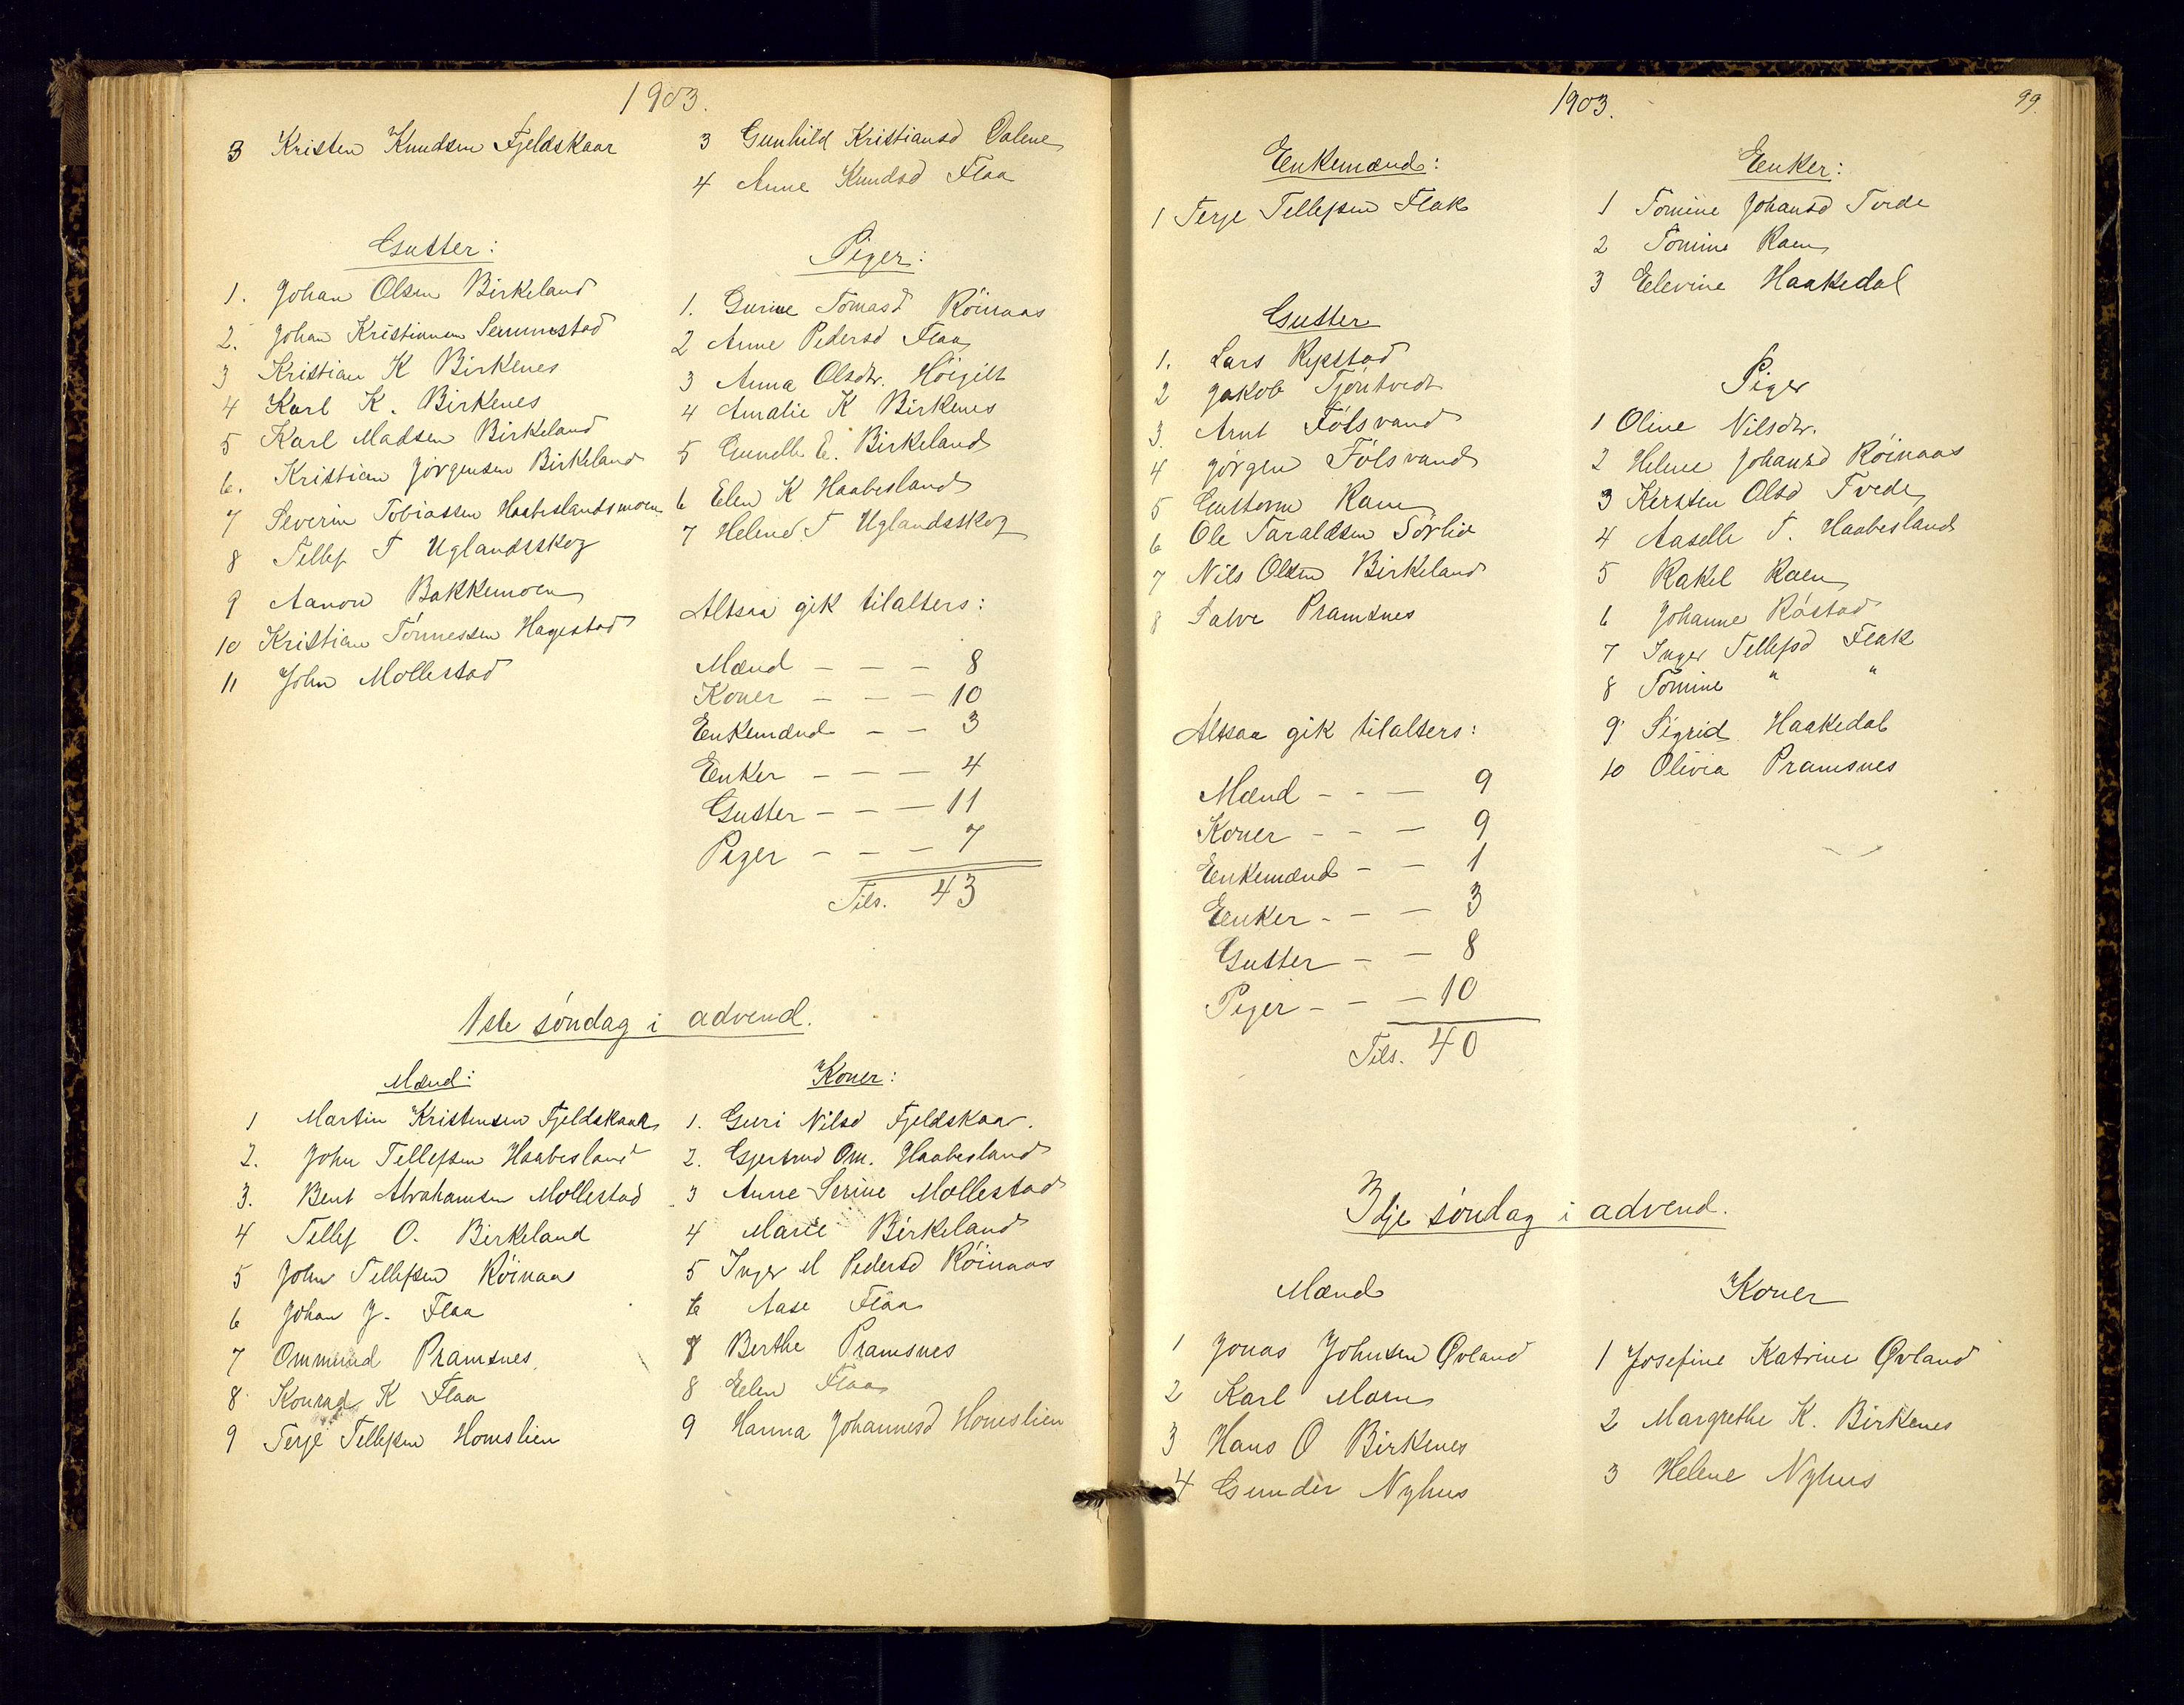 1903.
3 Kristen Knudsen Fjeldskaar
3 Gunhild Kristiansd Dalene
4 Anne Knudsd Flaa
Gutter:
1. Johan Olsen Birkeland
2. Johan Kristiansen Senumstad
3 Kristian K Birkenes
4 Karl K. Birkenes
5 Karl Madsen Birkeland
6. Kristian Jørgensen Birkeland
7 Severin Tobiassen Haabeslandsmoen
8 Tellef T Uglandsskog
9 Aanon Bakkemoen
10 Kristian Tønnessen Hagestad
11 John Mollestad
Piger:
1. Gurine Tomasd Röinaas
2 Anne Pedersd Flaa
3 Anna Olsdtr. Höigilt
4 Amalie K Birkenes
5 Gunelle E. Birkeland
6 Elen K Haabesland
7 Helene T Uglandsskog
Altsaa gik tilalters:
Mænd - - - 8
Koner - - - 10
Enkemænd - - 3
Enker - - - 4
Gutter - - - 11
Piger - - - 7
Tils. 43
1ste søndag i advend.
Mænd:
1 Martin Kristensen Fjeldskaar
2. John Tellefsen Haabesland
3. Bent Abrahamsen Mollestad
4 Tellef O. Birkeland
5 John Tellefsen Röinaas
6 Johan J. Flaa
7 Ommund Pramsnes
8 Konrad K Flaa
9 Terje Tellefsen Homslien
Koner:
1. Guri Nilsd Fjeldskaar.
2. Gjertrud Om. Haabesland
3 Anne Serine Mollestad
4 Marie Birkeland
5 Inger M Pedersd Röinaas
6 Aase Flaa
7 Berthe Pramsnes
8 Elen Flaa
9 Hanna Johannesd Homslien
1903.
99.
Enkemænd:
1 Terje Tellefsen Flak
Enker:
1 Tomine Johansd Tvede
2 Tomine Raen
3 Elevine Haakedal
Gutter
1. Lars Rypstad
2 Jakob Tjöntvedt
3. Arnt Fölsvand
4 Jörgen Fölsvand
5 Guttorm Raen
6 Ole Taraldsen Törlid
7 Nils Olsen Birkeland
8 Salve Pramsnes
Piger
1 Oline Nilsdtr.
2 Helene Johansd Röinaas
3 Kersten Olsd Tvede
4 Aaselle T. Haabesland
5 Rakel Raen
6 Johanne Röstad
7 Inger Tellefsd Flak
8 Tomine " "
9 Sigrid Haakedal
10 Olivia Pramsnes
Altsaa gik tilalters:
Mænd - - - 9
Koner - - - 9
Enkemænd - - 1
Enker - - - 3
Gutter - - 8
Piger - - - 10
Tils. 40
3dje søndag i advend.
Mænd
1 Jonas Johnsen Øvland
2 Karl Moen
3 Hans O Birkenes
4 Gunder Nyhus
Koner
1 Josefine Katrine Øvland
2 Margrethe K. Birkenes
3 Helene Nyhus